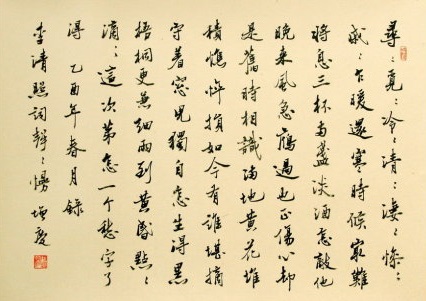 尋〻覓〻冷〻清〻淒〻慘〻
戚〻乍暖還寒時候最難
將息三杯兩盞淡酒怎敵他
晚來風急鴈過也正傷心却
是舊時相識滿地黄花堆
積憔悴損如今有誰堪摘
守着窓兒獨自怎生得黑
梧桐更兼細雨到黄昏點〻
滴〻這次第怎一個愁字了
得 乙酉年春月録
李清照詞聲〻慢